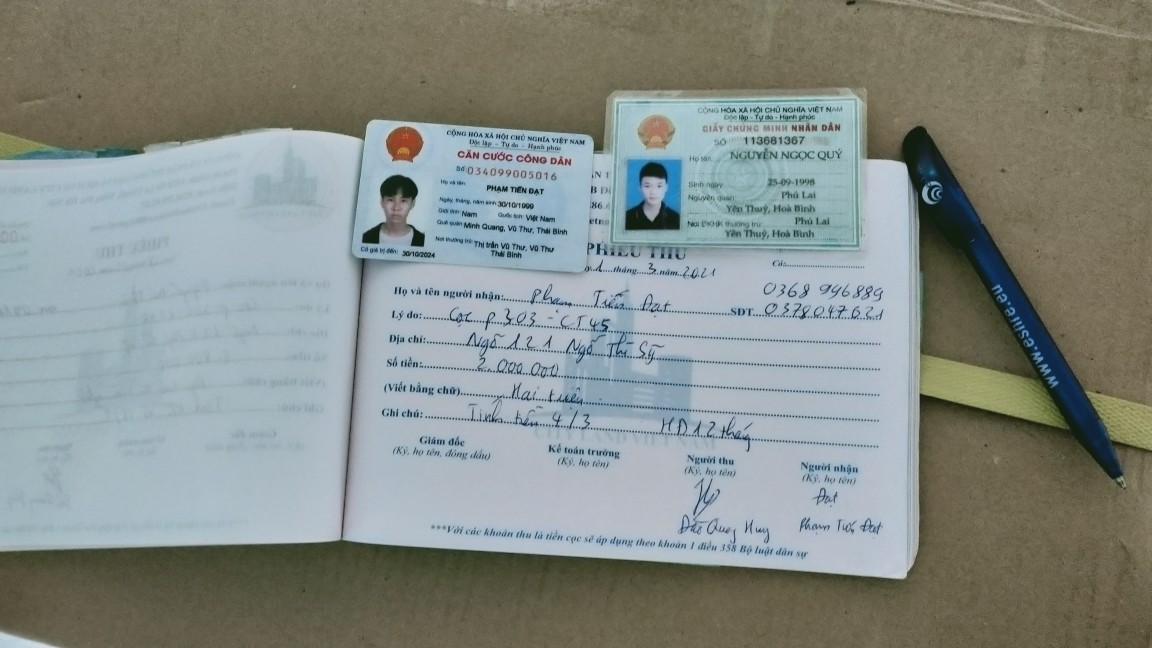 CỘNG HÒA XÃ HỘI CHỦ NGHĨA VIỆT NAM
Độc lập - Tự do - Hạnh phúc
CĂN CƯỚC CÔNG DÂN
Số 034099005016
Họ và tên:
PHẠM TIẾN ĐẠT
Ngày, tháng, năm sinh: 30/10/1999
Giới tính: Nam Quốc tịch: Việt Nam
Quê quán: Minh Quang, Vũ Thư, Thái Bình
Nơi thường trú: Thị trấn Vũ Thư, Vũ Thư
Thái Bình
Có giá trị đến: 30/10/2024
CỘNG HÒA XÃ HỘI CHỦ NGHĨA VIỆT NAM
Độc lập - Tự do - Hạnh phúc
GIẤY CHỨNG MINH NHÂN DÂN
SỐ 113681367
Họ tên: NGUYỄN NGỌC QUÝ
Sinh ngày: 25-09-1998
Nguyên quán: Phú Lai
Yên Thuỷ, Hoà Bình
Nơi ĐKHK thường trú: Phú Lai
Yên Thuỷ, Hoà Bình
PHIẾU THU
1 tháng 3 năm 2021
0368 996889
Họ và tên người nhận: Phạm Tiến Đạt SĐT 0378047621
Lý do: Cọc p303 - CT45
Địa chỉ: Ngõ 121 Ngô Thì Sỹ
Số tiền: 2.000.000
(Viết bằng chữ) Hai triệu
Ghi chú: Tính tiền 4/3 HĐ 12 tháng
CITY LAND VIET NAM
Giám đốc Kế toán trưởng Người thu Người nhận
(Ký, họ tên, đóng dấu) (Ký, họ tên) (Ký, họ tên) (Ký, họ tên)
Đạt
Quang Huy Phạm Tiến Đạt
***Với các khoản thu là tiền cọc sẽ áp dụng theo khoản 1 điều 358 Bộ luật dân sự
www.eslife.eu